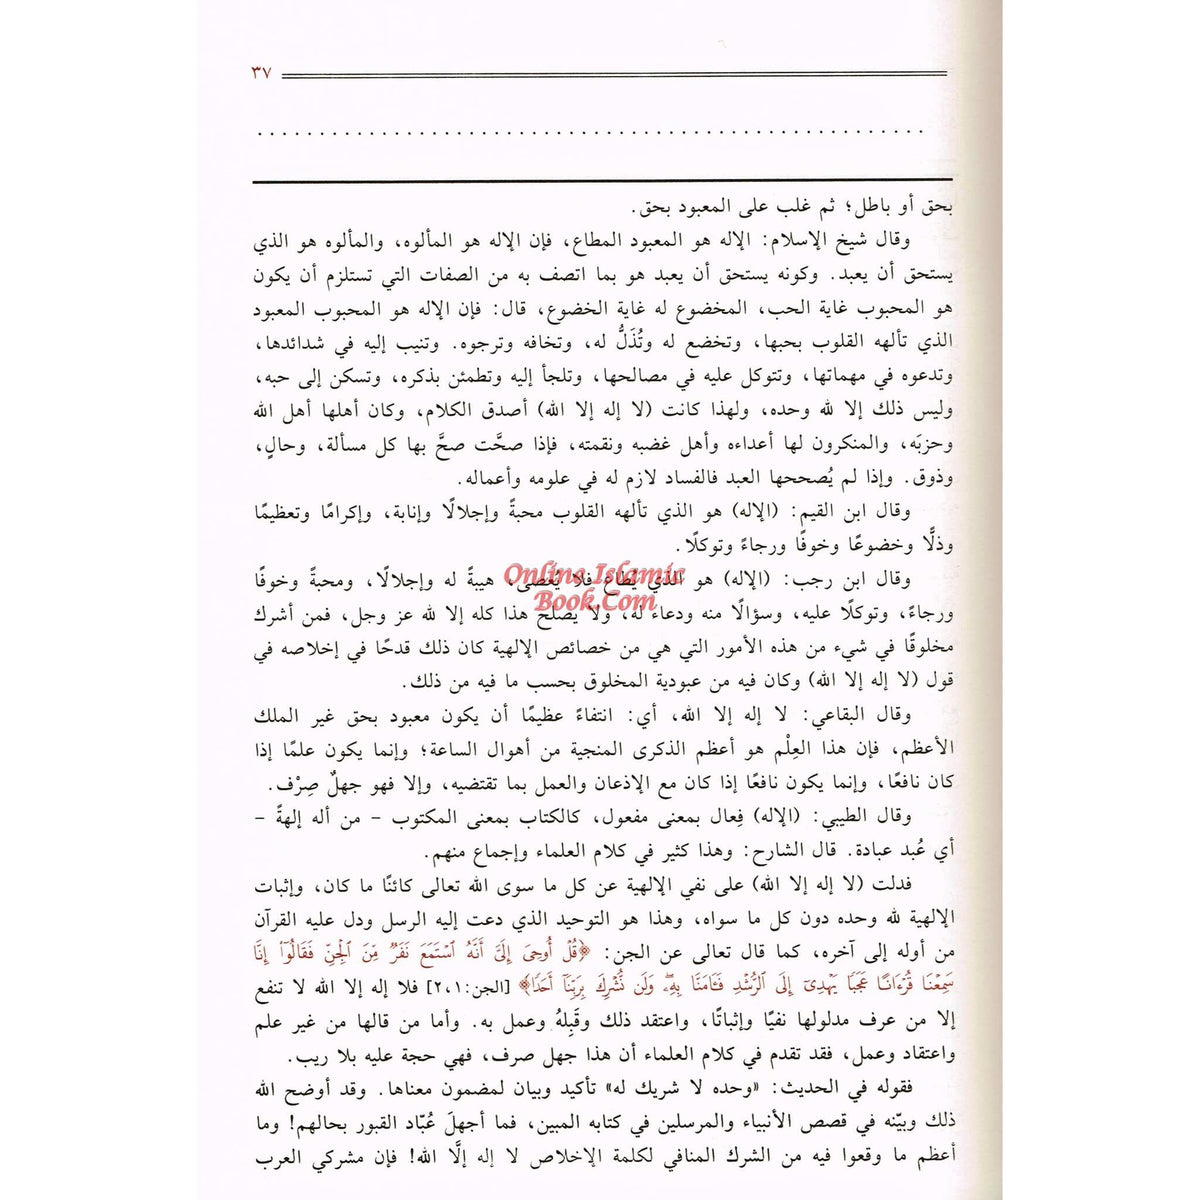 ٣٧
بحق أو باطل؛ ثم غلب على المعبود بحق.
وقال شيخ الإسلام: الإله هو المعبود المطاع، فإن الإله هو المألوه، والمألوه هو الذي
يستحق أن يعبد. وكونه يستحق أن يعبد هو بما اتصف به من الصفات التي تستلزم أن يكون
هو المحبوب غاية الحب، المخضوع له غاية الخضوع، قال: فإن الإله هو المحبوب المعبود
الذي تألهه القلوب بحبها، وتخضع له وتُذَلُّ له، وتخافه وترجوه. وتنيب إليه في شدائدها،
وتدعوه في مهماتها، وتتوكل عليه في مصالحها، وتلجأ إليه وتطمئن بذكره، وتسكن إلى حبه،
وليس ذلك إلا لله وحده، ولهذا كانت (لا إله إلا الله) أصدق الكلام، وكان أهلها أهل الله
وحزبَه، والمنكرون لها أعداءه وأهل غضبه ونقمته، فإذا صحَّت صحَّ بها كل مسألة، وحالٍ،
وذوق. وإذا لم يُصححها العبد فالفساد لازم له في علومه وأعماله.
وقال ابن القيم: (الإله) هو الذي تألهه القلوب محبةً وإجلالًا وإنابة، وإكرامًا وتعظيمًا
وذلًّا وخضوعًا وخوفًا ورجاءً وتوكلًا.
وقال ابن رجب: (الإله) هو الذي يُطاع فلا يُعصى، هيبةً له وإجلالًا، ومحبةً وخوفًا
ورجاءً، وتوكلًا عليه، وسؤالًا منه ودعاء له، ولا يصلح هذا كله إلا لله عز وجل، فمن أشرك
مخلوقًا في شيء من هذه الأمور التي هي من خصائص الإلهية كان ذلك قدحًا في إخلاصه في
قول (لا إله إلا الله) وكان فيه من عبودية المخلوق بحسب ما فيه من ذلك.
وقال البقاعي: لا إله إلا الله، أي: انتفاءً عظيمًا أن يكون معبود بحق غير الملك
الأعظم، فإن هذا العِلْم هو أعظم الذكرى المنجية من أهوال الساعة؛ وإنما يكون علمًا إذا
كان نافعًا، وإنما يكون نافعًا إذا كان مع الإذعان والعمل بما تقتضيه، وإلا فهو جهلٌ صِرْف.
وقال الطيبي: (الإله) فِعال بمعنى مفعول، كالكتاب بمعنى المكتوب – من أله إلهةً –
أي عُبد عبادة. قال الشارح: وهذا كثير في كلام العلماء وإجماع منهم.
فدلت (لا إله إلا الله) على نفي الإلهية عن كل ما سوى الله تعالى كائنًا ما كان، وإثبات
الإلهية لله وحده دون كل ما سواه، وهذا هو التوحيد الذي دعت إليه الرسل ودل عليه القرآن
من أوله إلى آخره، كما قال تعالى عن الجن: ﴿قُلْ أُوحِىَ إِلَىَّ أَنَّهُ ٱسْتَمَعَ نَفَرٌ مِّنَ ٱلْجِنِّ فَقَالُوٓا۟ إِنَّا
سَمِعْنَا قُرْءَانًا عَجَبًا يَهْدِىٓ إِلَى ٱلرُّشْدِ فَـَٔامَنَّا بِهِۦ وَلَن نُّشْرِكَ بِرَبِّنَآ أَحَدًا﴾ [الجن:٢،١] فلا إله إلا الله لا تنفع
إلا من عرف مدلولها نفيًا وإثباتًا، واعتقد ذلك وقَبِلهُ وعمل به. وأما من قالها من غير علم
واعتقاد وعمل، فقد تقدم في كلام العلماء أن هذا جهل صرف، فهي حجة عليه بلا ريب.
فقوله في الحديث: «وحده لا شريك له» تأكيد وبيان لمضمون معناها. وقد أوضح الله
ذلك وبيّنه في قصص الأنبياء والمرسلين في كتابه المبين، فما أجهلَ عُبّاد القبور بحالهم! وما
أعظم ما وقعوا فيه من الشرك المنافي لكلمة الإخلاص لا إله إلَّا الله! فإن مشركي العرب
Online Islamic
Book.Com